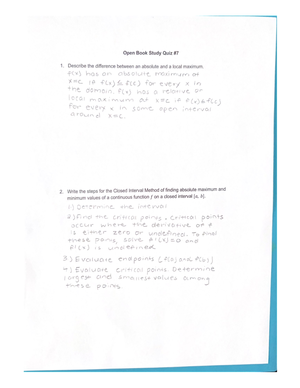 Open Book Study Quiz #7
1. Describe the difference between an absolute and a local maximum.
f(x) has an absolute maximum at
x=c if f(x)≤f(c) for every x in
the domain. f(x) has a relative or
local maximum at x=c if f(x)≤f(c)
for every x in some open interval
around x=c.
2. Write the steps for the Closed Interval Method of finding absolute maximum and
minimum values of a continuous function f on a closed interval [a, b].
1) Determine the interval
2) Find the critical points, critical points
occur where the derivative of f
is either zero or undefined. To find
these points, solve f'(x)=0 and
f'(x) is undefined
3) Evaluate endpoints f(a) and f(b)
4) Evaluate critical points Determine
largest and smallest values among
these points.